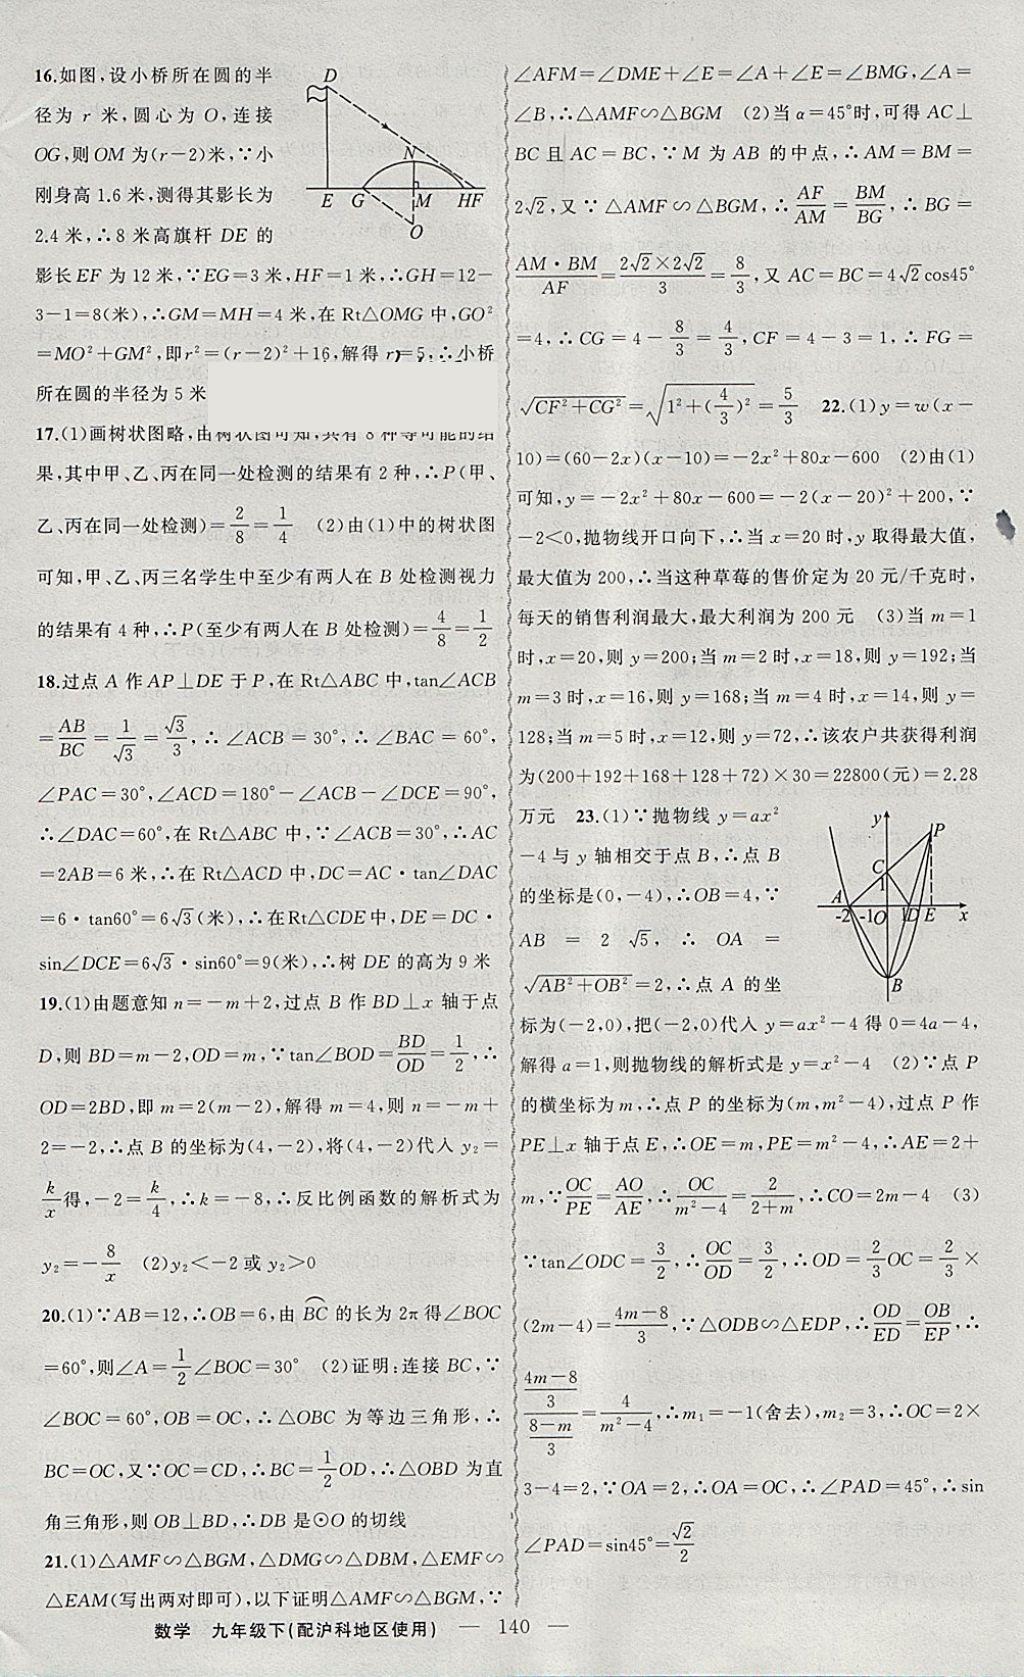 16.如图,设小桥所在圆的半
径为 r 米,圆心为 O,连接
OG,则 OM 为(r-2)米,∵小
刚身高 1.6 米,测得其影长为
2.4 米,∴8 米高旗杆 DE 的
影长 EF 为 12 米,∵EG=3 米,HF=1 米,∴GH=12-
3-1=8(米),∴GM=MH=4 米,在 Rt△OMG 中,GO²
=MO²+GM²,即r²=(r-2)²+16,解得 r=5,∴小桥
所在圆的半径为 5 米
D
N
E G M HF
O
17.(1)画树状图略,由树状图可知,共有 8 种等可能的结
果,其中甲、乙、丙在同一处检测的结果有 2 种,∴P(甲、
乙、丙在同一处检测)=2/8=1/4 (2)由(1)中的树状图
可知,甲、乙、丙三名学生中至少有两人在 B 处检测视力
的结果有 4 种,∴P(至少有两人在 B 处检测)=4/8=1/2
18.过点 A 作 AP⊥DE 于 P,在 Rt△ABC 中,tan∠ACB
=AB/BC=1/√3=√3/3,∴∠ACB=30°,∴∠BAC=60°,
∠PAC=30°,∠ACD=180°-∠ACB-∠DCE=90°,
∴∠DAC=60°,在 Rt△ABC 中,∵∠ACB=30°,∴AC
=2AB=6 米,在 Rt△ACD 中,DC=AC·tan∠DAC
=6·tan60°=6√3(米),∴在Rt△CDE中,DE=DC·
sin∠DCE=6√3·sin60°=9(米),∴树 DE 的高为 9 米
19.(1)由题意知 n=-m+2,过点 B 作 BD⊥x 轴于点
D,则 BD=m-2,OD=m,∵tan∠BOD=BD/OD=1/2,∴
OD=2BD,即 m=2(m-2),解得 m=4,则 n=-m+
2=-2,∴点 B 的坐标为(4,-2),将(4,-2)代入 y₂=
k/x得,-2=k/4,∴k=-8,∴反比例函数的解析式为
y₂=-8/x (2)y₂<-2或 y₂>0
20.(1)∵AB=12,∴OB=6,由 BC 的长为 2π 得∠BOC
=60°,则∠A=1/2∠BOC=30° (2)证明:连接 BC,∵
∠BOC=60°,OB=OC,∴△OBC 为等边三角形,∴
BC=OC,又∵OC=CD,∴BC=1/2OD,∴△OBD 为直
角三角形,则 OB⊥BD,∴DB 是⊙O 的切线
21.(1)△AMF∽△BGM,△DMG∽△DBM,△EMF∽
△EAM(写出两对即可),以下证明△AMF∽△BGM,∵
∠AFM=∠DME+∠E=∠A+∠E=∠BMG,∠A=
∠B,∴△AMF∽△BGM (2)当 α=45°时,可得 AC⊥
BC 且 AC=BC,∵M 为 AB 的中点,∴AM=BM=
2√2,又∵△AMF∽△BGM,∴AF/AM=BM/BG,∴BG=
AM·BM/AF=2√2×2√2/3=8/3,又 AC=BC=4√2cos45°
=4,∴CG=4-8/3=4/3,CF=4-3=1,∴FG=
√(CF²+CG²)=√(1²+(4/3)²)=5/3 22.(1)y=w(x-
10)=(60-2x)(x-10)=-2x²+80x-600 (2)由(1)
可知,y=-2x²+80x-600=-2(x-20)²+200,∵
-2<0,抛物线开口向下,∴当 x=20 时,y 取得最大值,
最大值为 200,∴当这种草莓的售价定为 20 元/千克时,
每天的销售利润最大,最大利润为 200 元 (3)当 m=1
时,x=20,则 y=200;当 m=2 时,x=18,则 y=192;当
m=3 时,x=16,则 y=168;当 m=4 时,x=14,则 y=
128;当 m=5 时,x=12,则 y=72,∴该农户共获得利润
为(200+192+168+128+72)×30=22800(元)=2.28
万元 23.(1)∵抛物线 y=ax²
-4 与 y 轴相交于点 B,∴点 B
的坐标是(0,-4),∴OB=4,∵
AB=2√5,∴OA=
√(AB²+OB²)=2,∴点 A 的坐
标为(-2,0),把(-2,0)代入 y=ax²-4 得 0=4a-4,
解得 a=1,则抛物线的解析式是 y=x²-4 (2)∵点 P
的横坐标为m,∴点 P 的坐标为(m,m²-4),过点 P 作
PE⊥x 轴于点 E,∴OE=m,PE=m²-4,∴AE=2+
m,∵OC/PE=AO/AE,∴OC/(m²-4)=2/(2+m),∴CO=2m-4 (3)
∵tan∠ODC=3/2,∴OC/OD=3/2,∴OD=2/3OC=2/3×
(2m-4)=(4m-8)/3,∵△ODB∽△EDP,∴OD/ED=OB/EP,∴
((4m-8)/3)/((8-m)/3)=4/(m²-4),∴m₁=-1(舍去),m₂=3,∴OC=2×
3-4=2,∵OA=2,∴OA=OC,∴∠PAD=45°,∴sin
∠PAD=sin45°=√2/2
y
P
C
1
A
-2 -1O 1D E x
B
数学 九年级下(配沪科地区使用) — 140 —